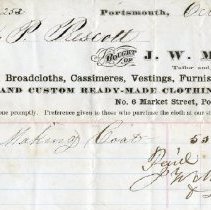 Portsmouth, Oc
P. Prescott
BOUGHT OF J. W. M
Tailor and
Broadcloths, Cassimeres, Vestings, Furnis
AND CUSTOM READY-MADE CLOTHIN
No. 6 Market Street, Po
one promptly. Preference given to those who purchase the cloth at our
Making Coat 5
Paid
J W M